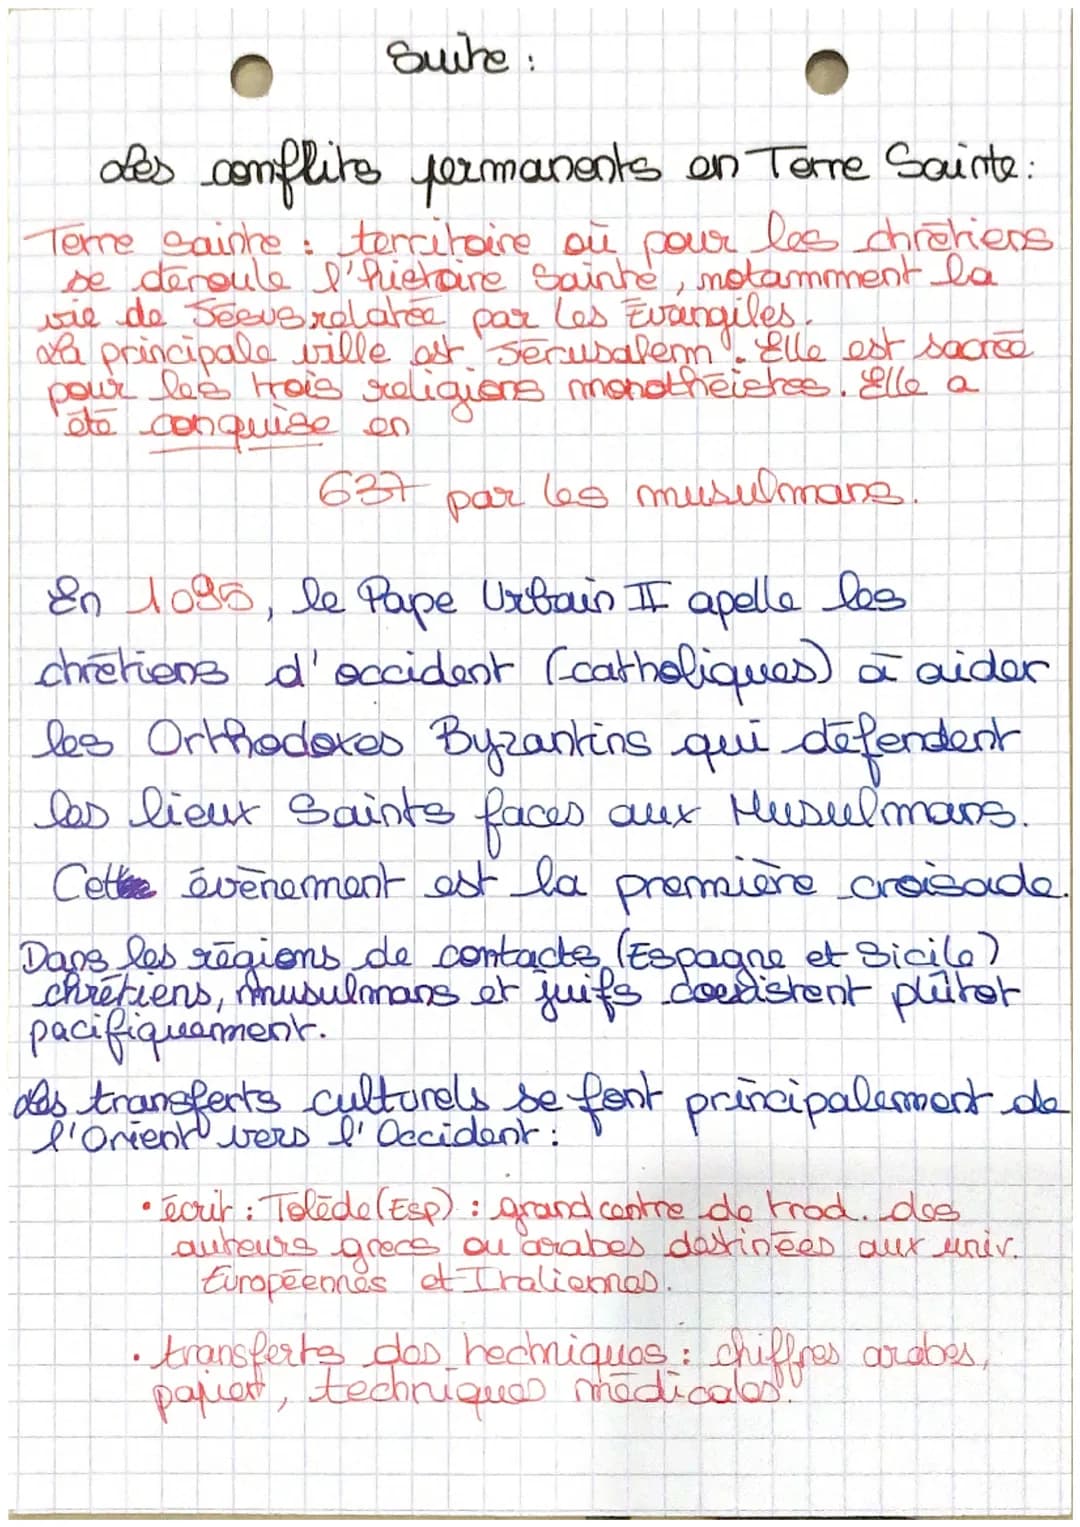 Suite :
Les conflits permanents en Terre Sainte :
Terre Sainte : territoire où pour les chrétiens
se déroule l'histoire Sainte, notammment la
vie de Jésus relatée par les Évangiles.
La principale ville est Jérusalem. Elle est sacrée
pour les trois religions monothéistes. Elle a
été conquise en
637 par les musulmans.
En 1095, le Pape Urbain II apelle les
chrétiens d'occident (catholiques) à aider
les Orthodoxes Byzantins qui défendent
les lieux Saints faces aux Musulmans.
évènement est la première croisade.
Dans les régions de contacts (Espagne et Sicile)
chrétiens, musulmans et juifs coexistent plûtot
pacifiquement.
Les transferts culturels se font principalement de
l'Orient vers l'Occident :
• écrit : Tolède (Esp) : grand centre de trad. des
auteurs grecs ou arabes destinées aux univ.
Européennes et Italiennes.
• transferts des techniques : chiffres arabes,
papier, techniques médicales.